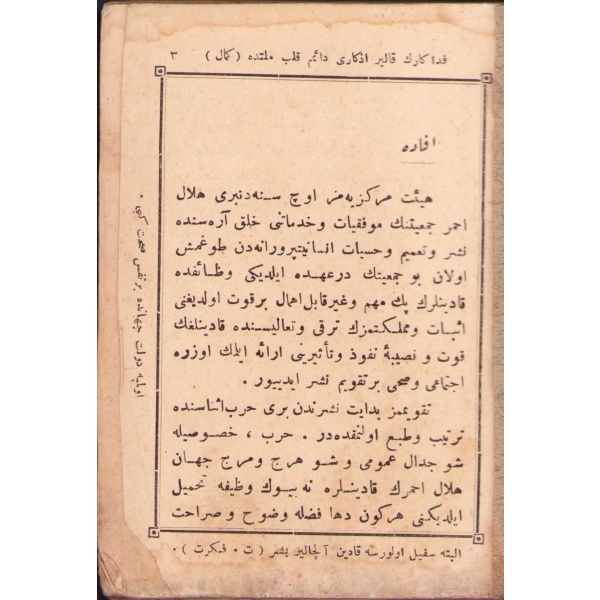 فداكارك قالير اذكارى دائم قلب ملتده ( كمال ) ٣
افاده
هيئت مركزيه‌مز اوچ سنه‌دنبرى هلال
احمر جمعيتنك موفقيات وخدماتنى خلق آره‌سنده
نشر وتعميم وحسيات انسانيتپرورانه‌دن طوغمش
اولان بو جمعيتك درعهده ايلديكى وظائفده
قادينلرك پك مهم وغيرقابل اهمال برقوت اولديغنى
اثبات ومملكتمزك ترقى وتعاليسنده قادينلغك
قوت و نصيبهٔ نفوذ وتأثيرينى ارائه ايلمك اوزره
اجتماعى وصحى برتقويم نشر ايدييور .
تقويممز بدايت نشرندن برى حرب اثناسنده
ترتيب وطبع اولنمقده‌در . حرب ، خصوصيله
شو جدال عمومى و شو هرج ومرج جهان
هلال احمرك قادينلره نه بيوك وظيفه تحميل
ايلديكنى هركون دها فضله وضوح و صراحت
البته سفيل اولورسه قادين آلچالير بشر ( ت . فكرت ) .
اولميه دولت جهانده برنفس صحت كبى .